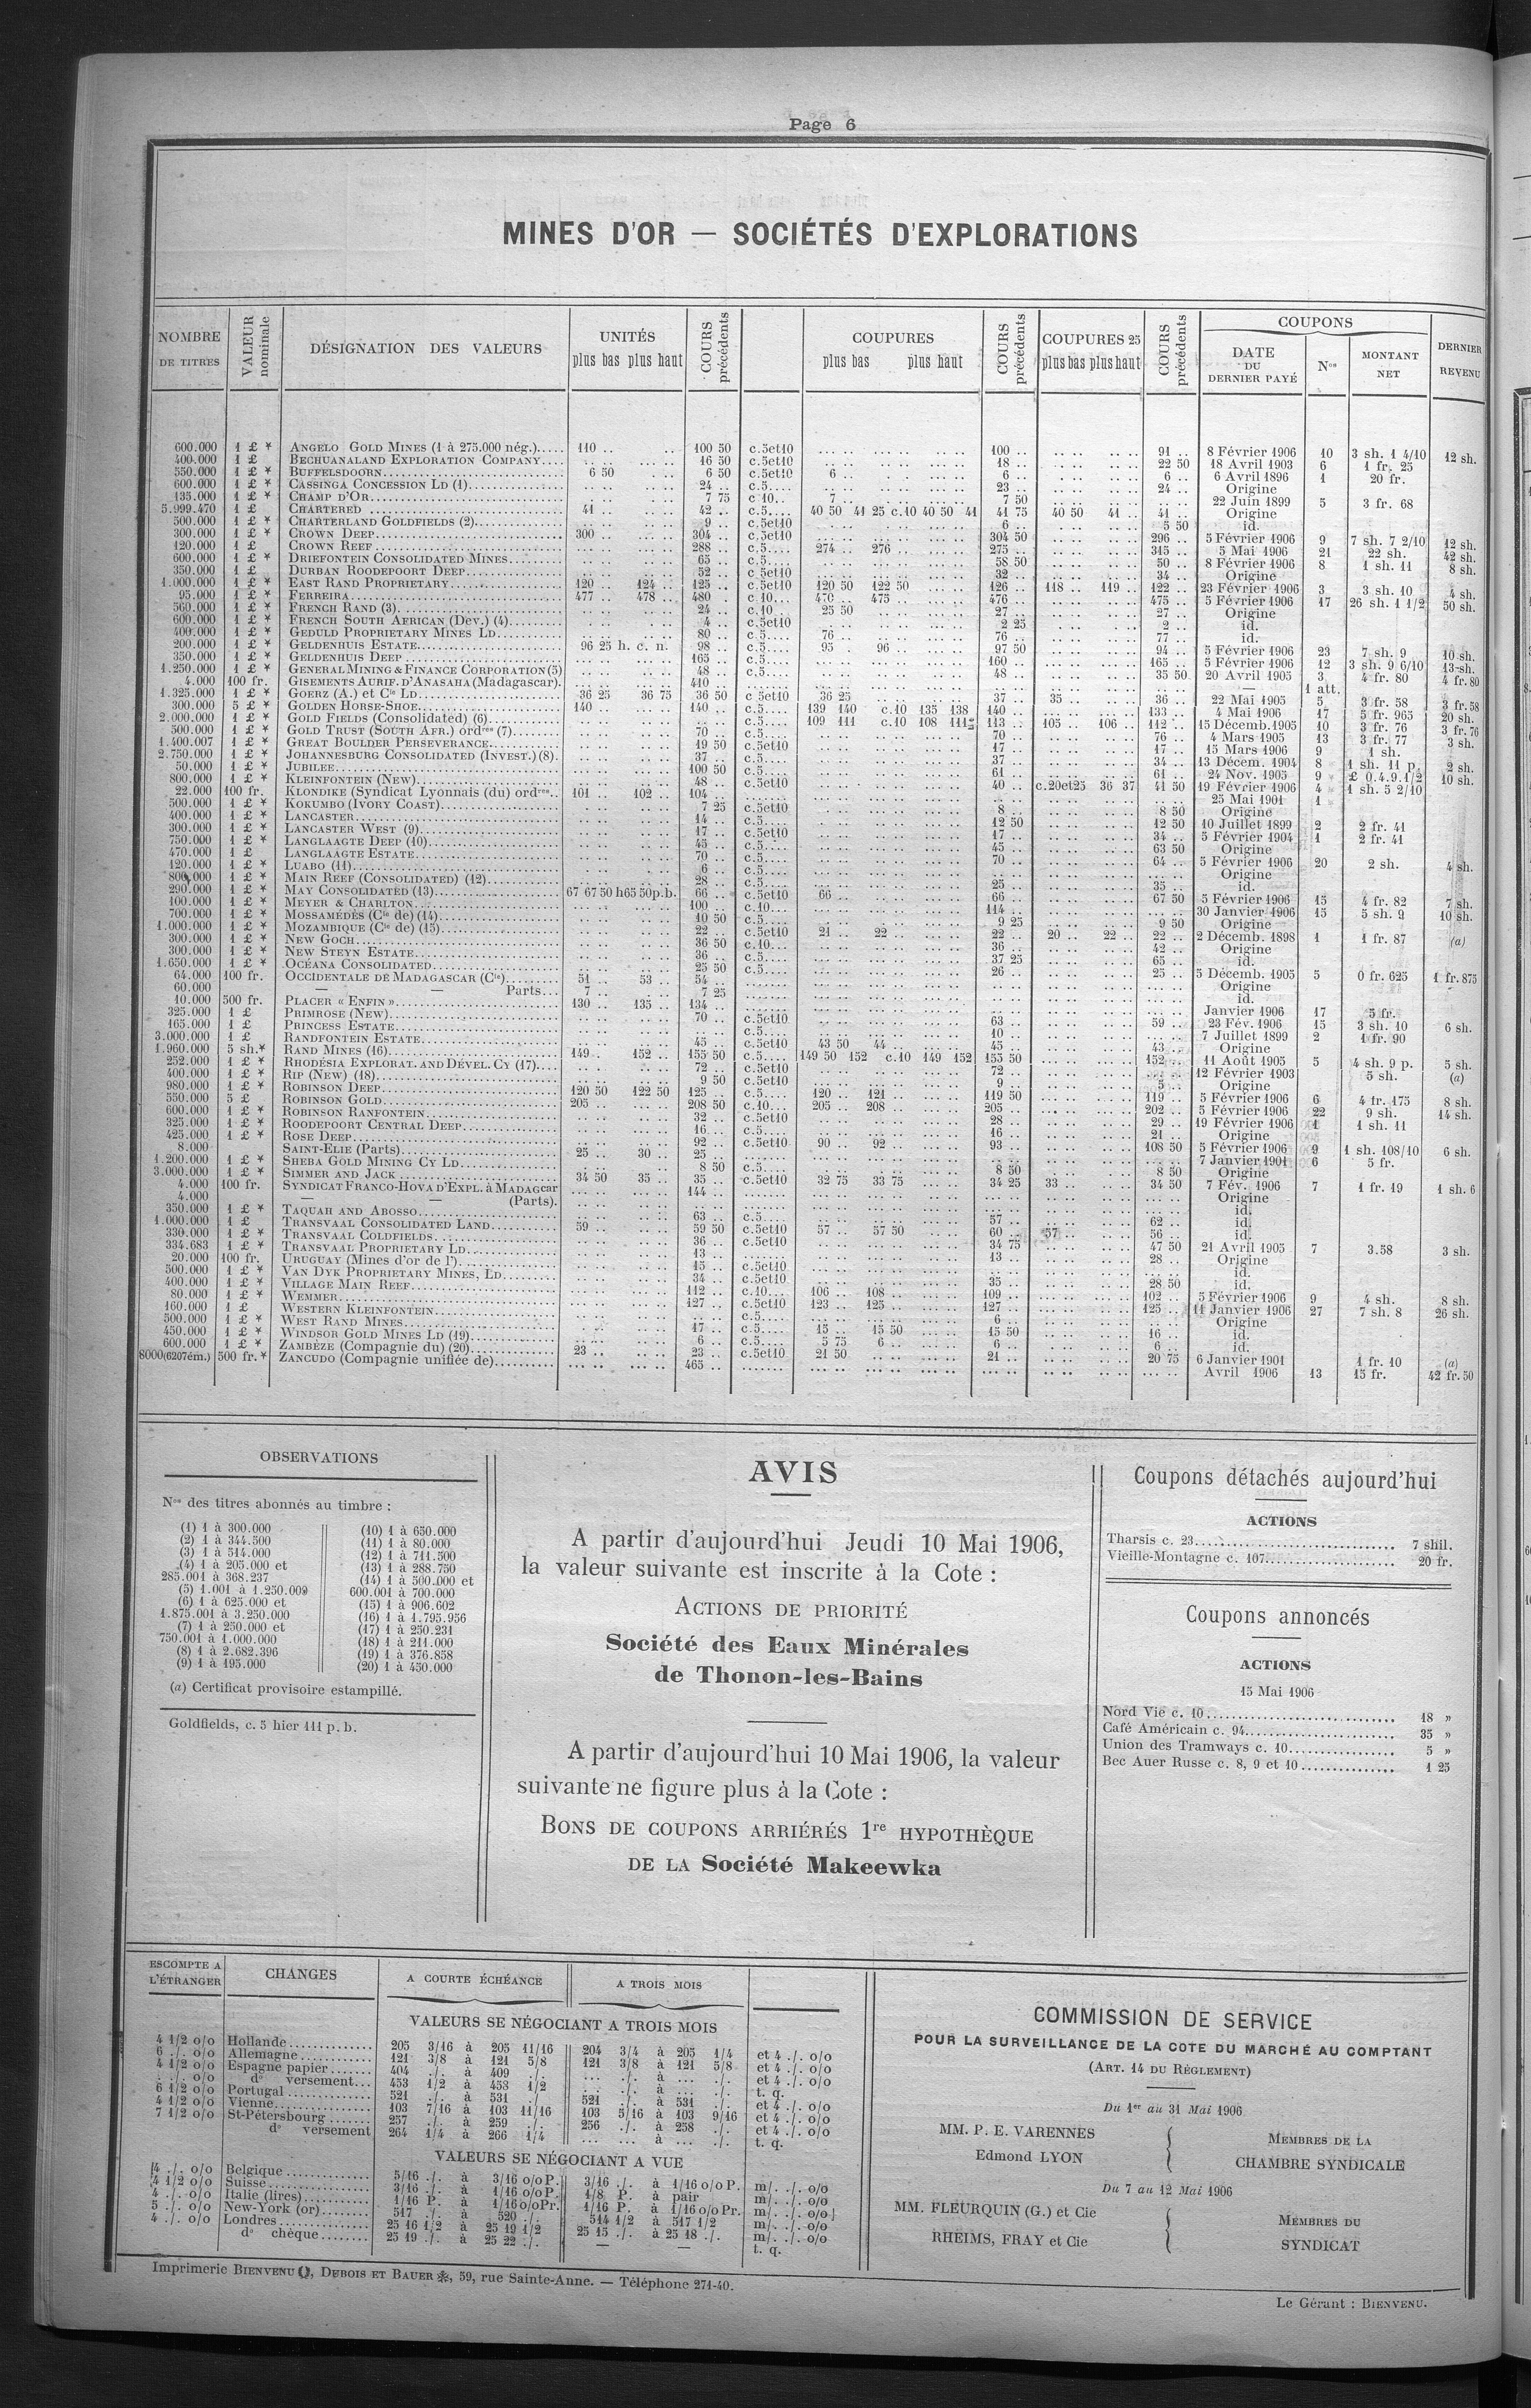 Page 6
MINES D'OR — SOCIÉTÉS D'EXPLORATIONS
NOMBRE DE TITRES | VALEUR nominale | DÉSIGNATION DES VALEURS | UNITÉS plus bas plus haut | COURS précédents | COUPURES plus bas plus haut | COURS précédents | COUPURES 25 plus bas plus haut | COURS précédents | COUPONS DATE DU DERNIER PAYÉ | Nos | MONTANT NET | DERNIER REVENU
600.000 1 £ * ANGELO GOLD MINES (1 à 275.000 nég.) 110 .. 100 50 c.5et10 100 .. 91 .. 8 Février 1906 10 3 sh. 1 4/10 12 sh.
400.000 1 £ BECHUANALAND EXPLORATION COMPANY 16 50 c.5et10 18 .. 22 50 18 Avril 1903 6 1 fr. 25
550.000 1 £ * BUFFELSDOORN 6 50 6 50 c.5et10 6 .. 6 .. 6 .. 6 Avril 1896 1 20 fr.
600.000 1 £ * CASSINGA CONCESSION LD (1) 24 .. c.5 23 .. 24 .. Origine
135.000 1 £ * CHAMP D'OR 7 75 c 10.. 7 .. 7 50 22 Juin 1899 5 3 fr. 68
5.999.470 1 £ CHARTERED 41 .. 42 .. c.5 40 50 41 25 c.10 40 50 41 41 75 40 50 41 .. 41 .. Origine
500.000 1 £ * CHARTERLAND GOLDFIELDS (2) 9 .. c.5et10 6 .. 5 50 id.
300.000 1 £ * CROWN DEEP 300 .. 304 .. c.5et10 304 50 296 .. 5 Février 1906 9 7 sh. 7 2/10 12 sh.
120.000 1 £ CROWN REEF 288 .. c.5 274 .. 276 .. 275 .. 315 .. 5 Mai 1906 21 22 sh. 42 sh.
600.000 1 £ * DRIEFONTEIN CONSOLIDATED MINES 65 .. c.5 58 50 50 .. 8 Février 1906 8 1 sh. 11 8 sh.
350.000 1 £ DURBAN ROODEPOORT DEEP 52 .. c.5et10 32 .. 34 .. Origine
1.000.000 1 £ * EAST RAND PROPRIETARY 120 .. 124 .. 125 .. c.5et10 120 50 122 50 126 .. 118 .. 119 .. 122 .. 23 Février 1906 3 3 sh. 10 4 sh.
95.000 1 £ * FERREIRA 477 .. 478 .. 480 c.10 470 .. 475 .. 476 .. 475 .. 5 Février 1906 17 26 sh. 1 1/2 50 sh.
560.000 1 £ * FRENCH RAND (3) 24 .. c.10 25 50 27 .. 27 .. Origine
600.000 1 £ * FRENCH SOUTH AFRICAN (Dev.) (4) 4 .. c.5et10 2 25 2 .. id.
400.000 1 £ * GEDULD PROPRIETARY MINES LD 80 .. c.5 76 .. 76 .. 77 .. id.
200.000 1 £ * GELDENHUIS ESTATE 96 25 h. c. n. 98 .. c.5 95 . 96 .. 97 50 94 .. 5 Février 1906 23 7 sh. 9 10 sh.
350.000 1 £ * GELDENHUIS DEEP 165 .. c.5 160 .. 165 .. 5 Février 1906 12 3 sh. 9 6/10 13 sh.
1.250.000 1 £ * GENERAL MINING & FINANCE CORPORATION (5) 48 .. c.5 48 .. 35 50 20 Avril 1905 3 4 fr. 80 4 fr. 80
4.000 100 fr. GISEMENTS AURIF. D'ANASAHA (Madagascar) 110 .. — 1 att.
1.325.000 1 £ * GOERZ (A.) et Cie LD 36 25 36 75 36 50 c 5et10 36 25 37 .. 35 .. 36 .. 22 Mai 1905 5 3 fr. 58 3 fr. 58
300.000 5 £ * GOLDEN HORSE-SHOE 140 .. 140 .. c.5 139 140 c.10 135 138 140 .. 133 .. 4 Mai 1906 17 5 fr. 965 20 sh.
2.000.000 1 £ * GOLD FIELDS (Consolidated) (6) c.5 109 111 c.10 108 111 113 .. 105 .. 106 .. 112 .. 15 Décemb. 1905 10 3 fr. 76 3 fr. 76
500.000 1 £ * GOLD TRUST (SOUTH AFR.) ordres (7) 70 .. c.5 70 .. 76 .. 4 Mars 1905 13 3 fr. 77 3 sh.
1.400.007 1 £ * GREAT BOULDER PERSEVERANCE 19 50 c.5et10 17 .. 17 .. 15 Mars 1906 9 1 sh.
2.750.000 1 £ * JOHANNESBURG CONSOLIDATED (INVEST.) (8) 37 .. c.5 37 .. 34 .. 13 Décem. 1904 8 1 sh. 11 p. 2 sh.
50.000 1 £ * JUBILEE 100 50 c.5 61 .. 61 .. 24 Nov. 1905 9 £ 0.4.9.1/2 10 sh.
800.000 1 £ * KLEINFONTEIN (NEW) 48 .. c.5et10 40 .. c.20et25 36 37 41 50 19 Février 1906 4 1 sh. 5 2/10
22.000 100 fr. KLONDIKE (Syndicat Lyonnais (du) ordres 101 .. 102 .. 104 .. 25 Mai 1901 1
500.000 1 £ * KOKUMBO (IVORY COAST) 7 25 c.5et10 8 .. 8 50 Origine
400.000 1 £ * LANCASTER 14 .. c.5 12 50 12 50 10 Juillet 1899 2 2 fr. 41
300.000 1 £ * LANCASTER WEST (9) 17 .. c.5et10 17 .. 34 .. 5 Février 1904 1 2 fr. 41
750.000 1 £ * LANGLAAGTE DEEP (10) 45 .. c.5 45 .. 63 50 Origine
470.000 1 £ LANGLAAGTE ESTATE 70 .. c.5 70 .. 64 .. 5 Février 1906 20 2 sh. 4 sh.
120.000 1 £ * LUABO (11) 6 .. c.5 Origine
800.000 1 £ * MAIN REEF (CONSOLIDATED) (12) 28 .. c.5 25 .. 35 .. id.
290.000 1 £ * MAY CONSOLIDATED (13) 67 67 50 h 65 50 p.b. 66 .. c.5et10 66 .. 66 .. 67 50 5 Février 1906 15 4 fr. 82 7 sh.
100.000 1 £ * MEYER & CHARLTON 100 .. c.10 114 .. 30 Janvier 1906 15 5 sh. 9 10 sh.
700.000 1 £ * MOSSAMÉDÈS (Cie de) (14) 10 50 c.5 9 25 9 50 Origine
1.000.000 1 £ * MOZAMBIQUE (Cie de) (15) 22 .. c.5et10 21 .. 22 .. 22 .. 20 .. 22 .. 22 .. 2 Décemb. 1898 1 1 fr. 87 (a)
300.000 1 £ * NEW GOCH 36 50 c.10 36 .. 42 .. Origine
300.000 1 £ * NEW STEYN ESTATE 36 .. c.5 37 25 65 .. id.
1.650.000 1 £ * OCÉANA CONSOLIDATED 25 50 c.5 26 .. 25 .. 5 Décemb. 1905 5 0 fr. 625 1 fr. 875
64.000 100 fr. OCCIDENTALE DE MADAGASCAR (Cie) 51 .. 53 .. 54 .. Origine
60.000 — — Parts 7 .. 7 25 id.
10.000 500 fr. PLACER « ENFIN » 130 .. 135 .. 134 .. Janvier 1906 17 5 fr.
325.000 1 £ PRIMROSE (NEW) 70 .. c.5et10 63 .. 59 .. 23 Fév. 1906 15 3 sh. 10 6 sh.
165.000 1 £ PRINCESS ESTATE c.5 10 .. 7 Juillet 1899 2 1 fr. 90
3.000.000 1 £ RANDFONTEIN ESTATE 45 .. c.5et10 43 50 44 .. 45 .. 43 .. Origine
1.960.000 5 sh.* RAND MINES (16) 149 .. 152 .. 155 50 c.5 149 50 152 c.10 149 152 155 50 152 .. 11 Août 1905 5 4 sh. 9 p. 5 sh.
252.000 1 £ * RHODÉSIA EXPLORAT. AND DÉVEL. CY (17) 72 .. c.5et10 72 .. 12 Février 1903 5 sh. (a)
400.000 1 £ * RIP (NEW) (18) 9 50 c.5et10 9 .. 5 .. Origine
980.000 1 £ * ROBINSON DEEP 120 50 122 50 125 .. c.5 120 .. 121 .. 119 50 119 .. 5 Février 1906 6 4 fr. 175 8 sh.
550.000 5 £ ROBINSON GOLD 205 .. 208 50 c.10 205 .. 208 .. 205 .. 202 .. 5 Février 1906 22 9 sh. 14 sh.
600.000 1 £ * ROBINSON RANFONTEIN 32 .. c.5et10 28 .. 29 .. 19 Février 1906 1 1 sh. 11
325.000 1 £ * ROODEPOORT CENTRAL DEEP 16 .. c.5 16 .. 21 .. Origine
425.000 1 £ * ROSE DEEP 92 .. c.5et10 90 .. 92 .. 93 .. 108 50 5 Février 1906 9 1 sh. 108/10 6 sh.
8.000 SAINT-ELIE (Parts) 25 .. 30 .. 25 .. 7 Janvier 1901 6 5 fr.
1.200.000 1 £ * SHEBA GOLD MINING CY LD 8 50 c.5 8 50 8 50 Origine
3.000.000 1 £ * SIMMER AND JACK 34 50 35 .. 35 .. c.5et10 32 75 33 75 34 25 33 .. 34 50 7 Fév. 1906 7 1 fr. 19 1 sh. 6
4.000 100 fr. SYNDICAT FRANCO-HOVA D'EXPL. à MADAGcar 144 .. Origine
4.000 — — (Parts). id.
350.000 1 £ * TAQUAH AND ABOSSO 63 .. c.5 57 .. 62 .. id.
1.000.000 1 £ TRANSVAAL CONSOLIDATED LAND 59 .. 59 50 c.5et10 57 .. 57 50 60 .. 57 .. 56 .. id.
330.000 1 £ * TRANSVAAL COLDFIELDS 36 .. c.5et10 34 75 47 50 21 Avril 1905 7 3.58 3 sh.
334.683 1 £ * TRANSVAAL PROPRIETARY LD 13 .. 13 .. 28 .. Origine
20.000 100 fr. URUGUAY (Mines d'or de l') 15 .. c.5et10 id.
500.000 1 £ * VAN DYK PROPRIETARY MINES, LD 34 .. c.5et10 35 .. 28 50 id.
400.000 1 £ * VILLAGE MAIN REEF 112 .. c.10 106 .. 108 .. 109 .. 102 .. 5 Février 1906 9 4 sh. 8 sh.
80.000 1 £ * WEMMER 127 .. c.5et10 123 .. 125 .. 127 .. 125 .. 11 Janvier 1906 27 7 sh. 8 26 sh.
160.000 1 £ WESTERN KLEINFONTEIN c.5 6 .. Origine
500.000 1 £ * WEST RAND MINES 17 .. c.5 15 .. 15 50 15 50 16 .. id.
450.000 1 £ * WINDSOR GOLD MINES LD (19) 6 .. c.5 5 75 6 .. 6 .. 6 .. id.
600.000 1 £ * ZAMBÈZE (Compagnie du) (20) 23 .. 23 .. c.5et10 21 50 21 .. 20 75 6 Janvier 1901 1 fr. 10 (a)
8000(6207ém.) 500 fr.* ZANCUDO (Compagnie unifiée de) 465 .. Avril 1906 13 15 fr. 42 fr. 50
OBSERVATIONS
Nos des titres abonnés au timbre :
(1) 1 à 300.000
(2) 1 à 344.500
(3) 1 à 514.000
(4) 1 à 205.000 et
285.001 à 368.237
(5) 1.001 à 1.250.009
(6) 1 à 625.000 et
1.875.001 à 3.250.000
(7) 1 à 250.000 et
750.001 à 1.000.000
(8) 1 à 2.682.396
(9) 1 à 195.000
(10) 1 à 650.000
(11) 1 à 80.000
(12) 1 à 711.500
(13) 1 à 288.750
(14) 1 à 500.000 et
600.001 à 700.000
(15) 1 à 906.602
(16) 1 à 1.795.956
(17) 1 à 250.231
(18) 1 à 211.000
(19) 1 à 376.858
(20) 1 à 450.000
(a) Certificat provisoire estampillé.
Goldfields, c. 5 hier 111 p. b.
AVIS
A partir d'aujourd'hui Jeudi 10 Mai 1906,
la valeur suivante est inscrite à la Cote :
ACTIONS DE PRIORITÉ
Société des Eaux Minérales
de Thonon-les-Bains
A partir d'aujourd'hui 10 Mai 1906, la valeur
suivante ne figure plus à la Cote :
BONS DE COUPONS ARRIÉRÉS 1re HYPOTHÈQUE
DE LA Société Makeewka
Coupons détachés aujourd'hui
ACTIONS
Tharsis c. 23 7 shil.
Vieille-Montagne c. 107 20 fr.
Coupons annoncés
ACTIONS
15 Mai 1906
Nord Vie c. 10 18 »
Café Américain c. 94 35 »
Union des Tramways c. 10 5 »
Bec Auer Russe c. 8, 9 et 10 1 25
ESCOMPTE A L'ÉTRANGER | CHANGES | A COURTE ÉCHÉANCE | A TROIS MOIS
VALEURS SE NÉGOCIANT A TROIS MOIS
4 1/2 o/o Hollande 205 3/16 à 205 11/16 204 3/4 à 205 1/4 et 4 ./. o/o
6 ./. o/o Allemagne 121 3/8 à 121 5/8 121 3/8 à 121 5/8 et 4 ./. o/o
4 1/2 o/o Espagne papier 404 ./. à 409 ./. ... ./. à ... ./. et 4 ./. o/o
. ./. o/o do versement 453 1/2 à 453 1/2 ... ./. à ... ./. t. q.
6 1/2 o/o Portugal 521 ./. à 531 ./. 521 ./. à 531 ./. et 4 ./. o/o
4 1/2 o/o Vienne 103 7/16 à 103 11/16 103 5/16 à 103 9/16 et 4 ./. o/o
7 1/2 o/o St-Pétersbourg 257 ./. à 259 ./. 256 ./. à 258 ./. et 4 ./. o/o
do versement 264 1/4 à 266 1/4 ... ... à ... ./. t. q.
VALEURS SE NÉGOCIANT A VUE
4 ./. o/o Belgique 5/16 ./. à 3/16 o/o P. 3/16 ./. à 1/16 o/o P. m/. ./. o/o
4 1/2 o/o Suisse 3/16 ./. à 1/16 o/o P. 1/8 P. à pair m/. ./. o/o
4 ./. o/o Italie (lires) 1/16 P. à 1/16 o/o Pr. 1/16 P. à 1/16 o/o Pr. m/. ./. o/o
5 ./. o/o New-York (or) 517 ./. à 520 ./. 514 1/2 à 517 1/2 m/. ./. o/o
4 ./. o/o Londres 25 16 1/2 à 25 19 1/2 25 15 ./. à 25 18 ./. m/. ./. o/o
do chèque 25 19 ./. à 25 22 ./. — — t. q.
COMMISSION DE SERVICE
POUR LA SURVEILLANCE DE LA COTE DU MARCHÉ AU COMPTANT
(ART. 14 DU RÈGLEMENT)
Du 1er au 31 Mai 1906
MM. P. E. VARENNES
Edmond LYON
MEMBRES DE LA
CHAMBRE SYNDICALE
Du 7 au 12 Mai 1906
MM. FLEURQUIN (G.) et Cie
RHEIMS, FRAY et Cie
MEMBRES DU
SYNDICAT
Imprimerie BIENVENU, DUBOIS ET BAUER, 59, rue Sainte-Anne. — Téléphone 271-40.
Le Gérant : BIENVENU.